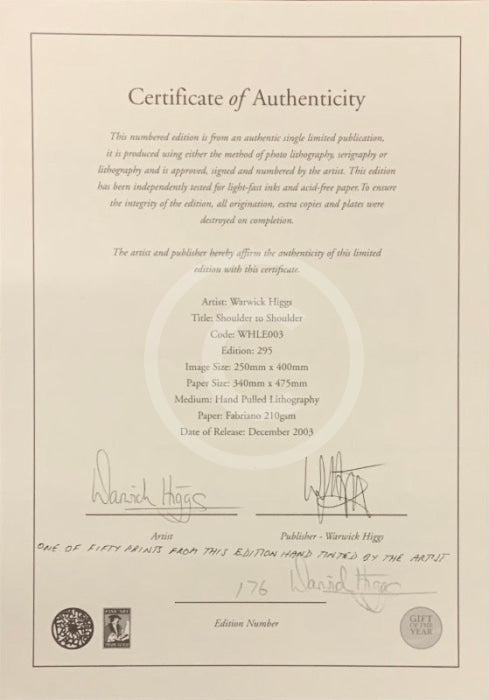 Certificate of Authenticity
This numbered edition is from an authentic single limited publication,
it is produced using either the method of photo lithography, serigraphy or
lithography and is approved, signed and numbered by the artist. This edition
has been independently tested for light-fast inks and acid-free paper. To ensure
the integrity of the edition, all origination, extra copies and plates were
destroyed on completion.
The artist and publisher hereby affirm the authenticity of this limited
edition with this certificate.
Artist: Warwick Higgs
Title: Shoulder to Shoulder
Code: WHLE003
Edition: 295
Image Size: 250mm x 400mm
Paper Size: 340mm x 475mm
Medium: Hand Pulled Lithography
Paper: Fabriano 210gsm
Date of Release: December 2003
Warwick Higgs
Artist
Publisher - Warwick Higgs
ONE OF FIFTY PRINTS FROM THIS EDITION HAND TINTED BY THE ARTIST
176 Warwick Higgs
Edition Number
FINE ART
GIFT
OF THE
YEAR